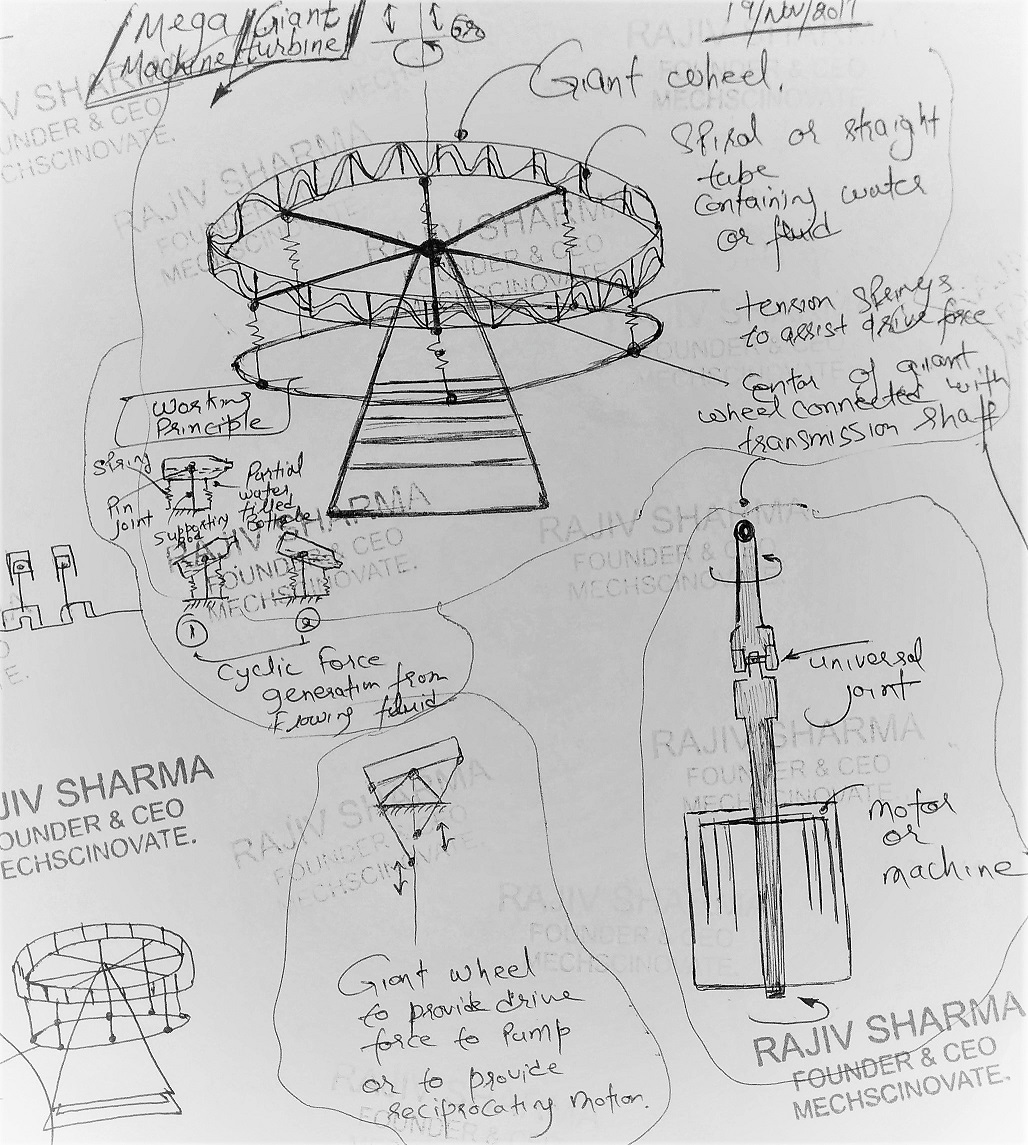 Mega/Giant
Machine/turbine
19/Nov/2017
Giant wheel.
Spiral or straight
tube
containing water
or fluid
tension springs
to assist drive force
Center of giant
wheel connected with
transmission shaft
Working
Principle
Spring
Pin
joint
Supporting
rod
Partial
water
filled
1
2
Cyclic force
generation from
flowing fluid
universal
joint
motor
or
machine
Giant wheel
to provide drive
force to Pump
or to provide
reciprocating motion.
RAJIV SHARMA
FOUNDER & CEO
MECHSCINOVATE.
RAJIV SHARMA
FOUNDER & CEO
MECHSCINOVATE.
RAJIV SHARMA
FOUNDER & CEO
MECHSCINOVATE.
RAJIV SHARMA
FOUNDER & CEO
MECHSCINOVATE.
RAJIV SHARMA
FOUNDER & CEO
MECHSCINOVATE.
RAJIV SHARMA
FOUNDER & CEO
MECHSCINOVATE.
JIV SHARMA
OUNDER & CEO
ECHSCINOVATE.
RAJIV SHARMA
FOUNDER & CEO
MECHSCINOVATE.
RAJIV SHARMA
FOUNDER & CEO
MECHSCINOVATE.